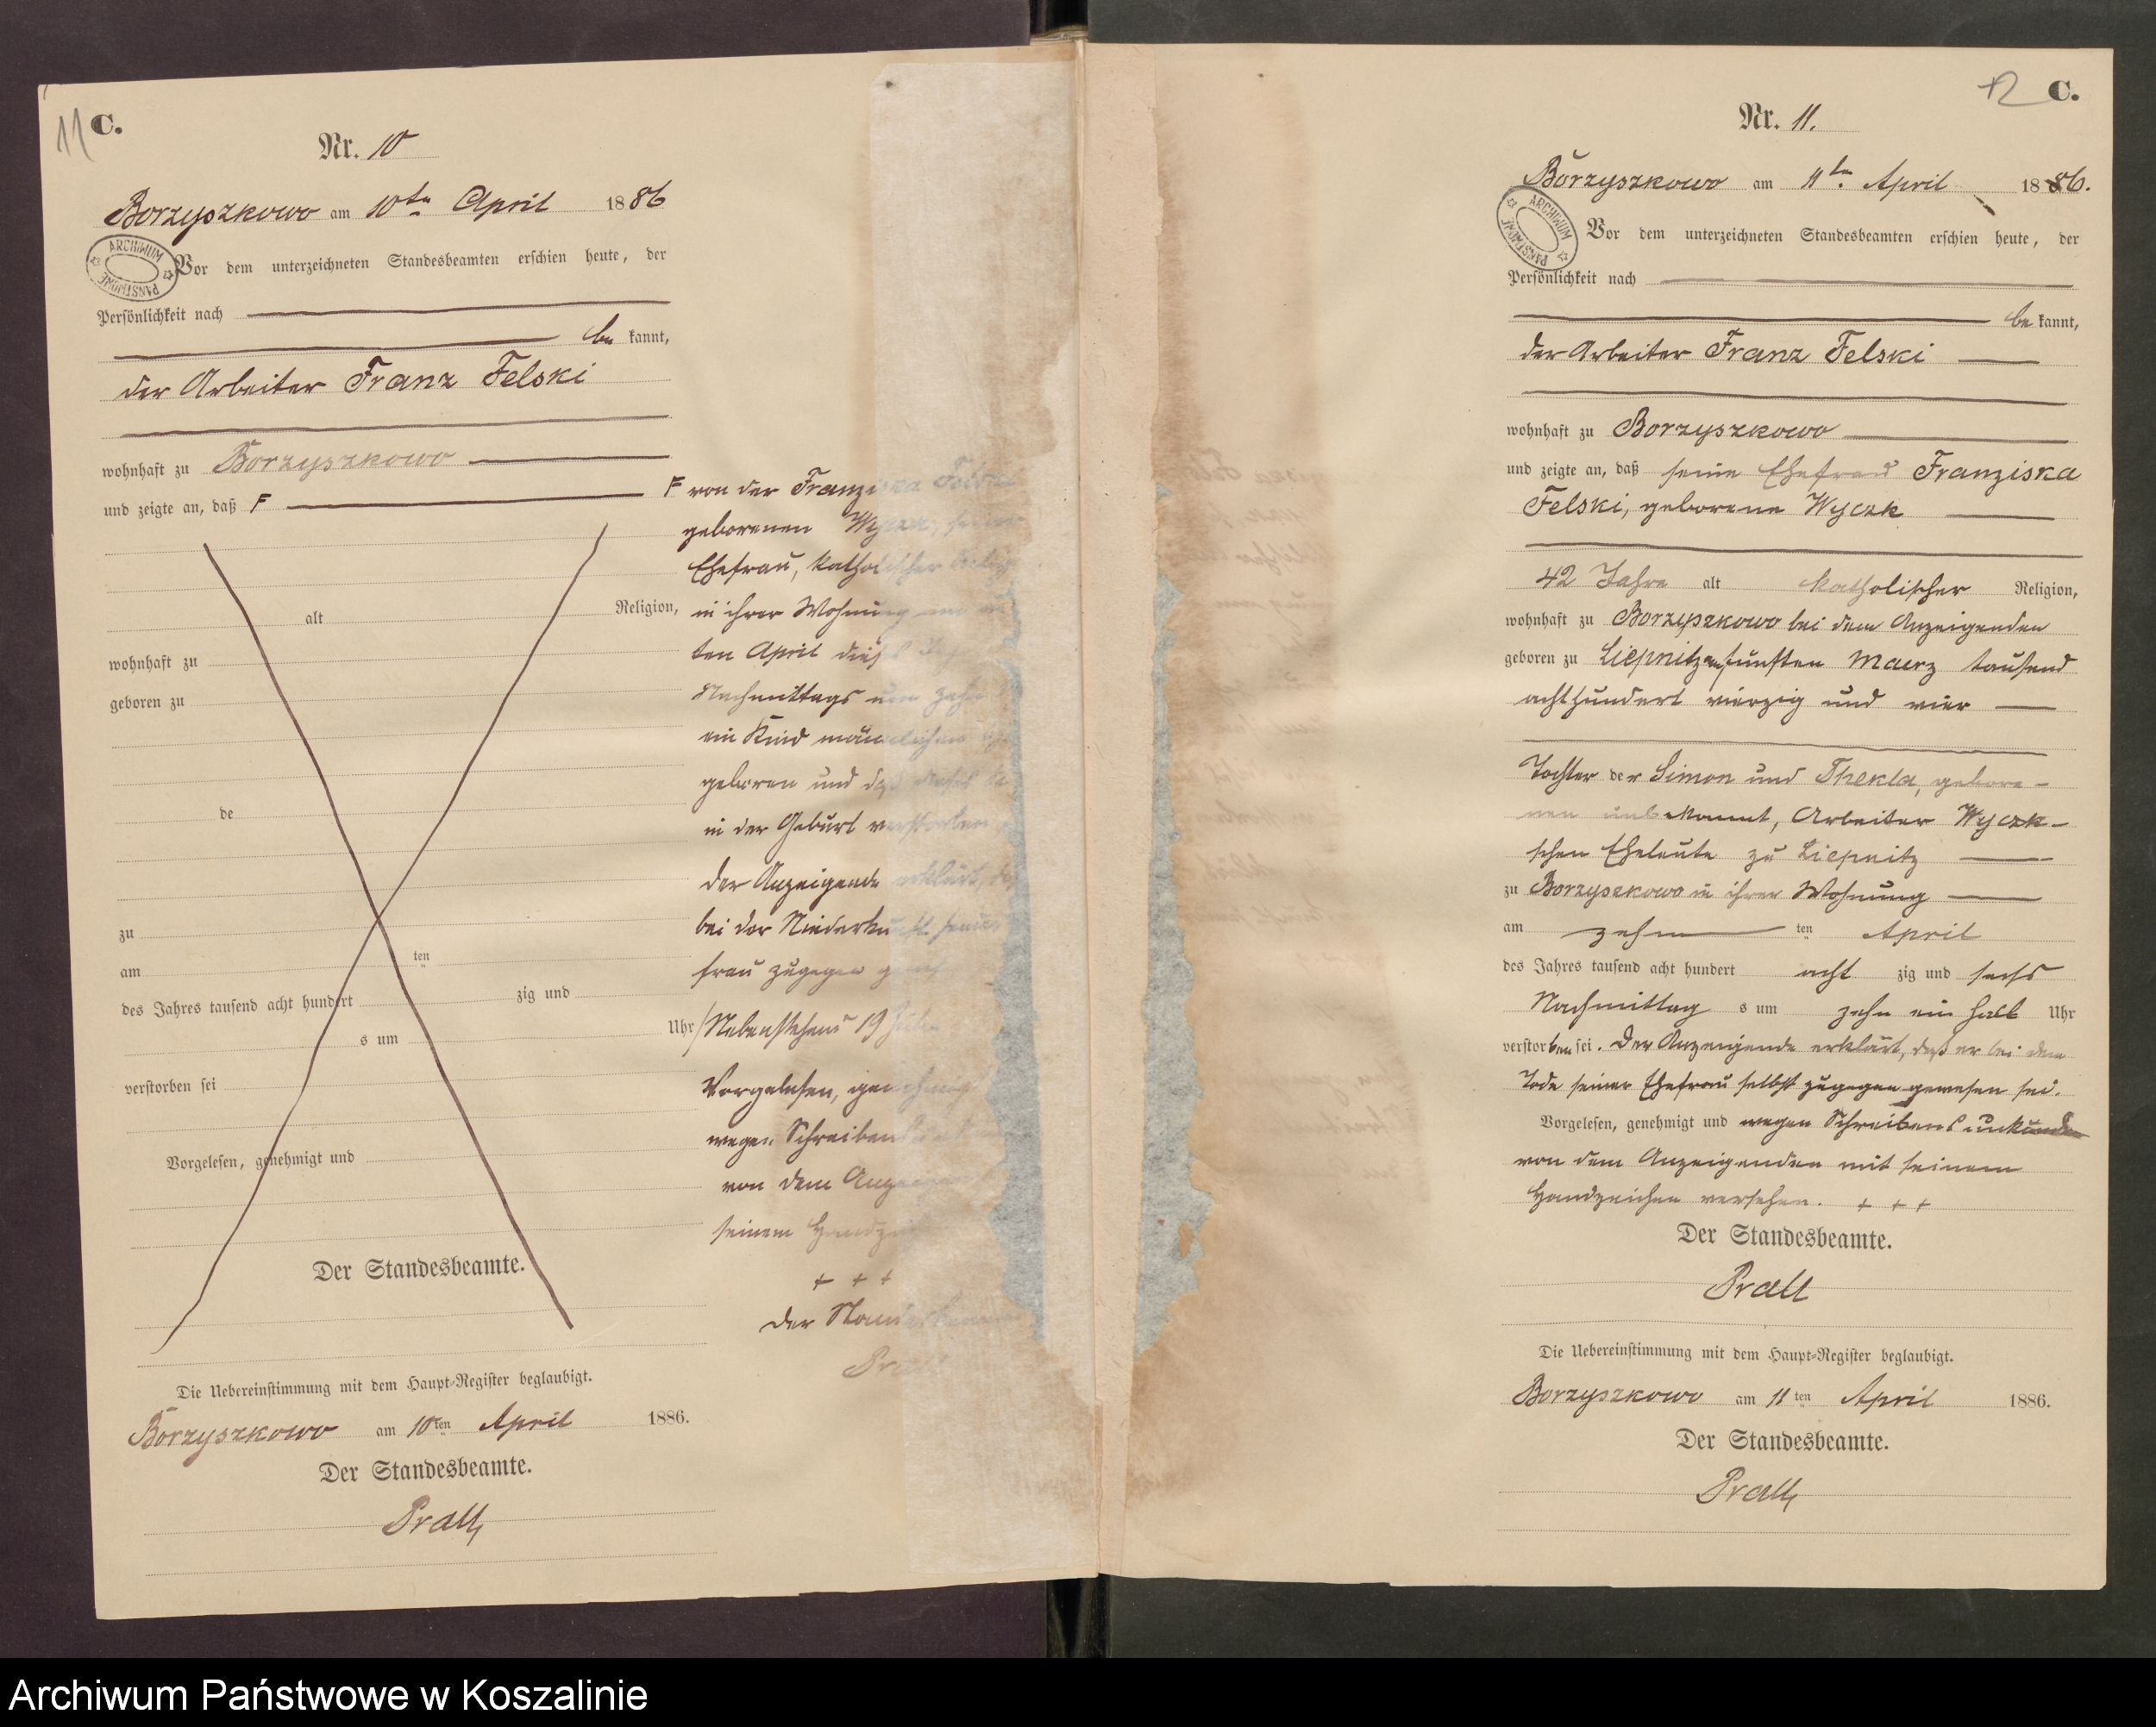 11 C.
Nr. 10
Borzyszkowo am 10ten April 1886
ARCHIWUM PAŃSTWOWE
Vor dem unterzeichneten Standesbeamten erschien heute, der
Persönlichkeit nach
be kannt,
der Arbeiter Franz Felski
wohnhaft zu Borzyszkowo
und zeigte an, daß F
alt Religion,
wohnhaft zu
geboren zu
de
zu
am ten
des Jahres tausend acht hundert zig und
s um Uhr
verstorben sei
Vorgelesen, genehmigt und
Der Standesbeamte.
F von der Franziska Felski
geborenen Wyczk, seiner
Ehefrau, katholischer
in ihrer Wohnung am
ten April dieses
Nachmittags um zehn
ein Kind männlichen
geboren und daß dieses
in der Geburt verstorben
Der Anzeigende erklärt, daß
bei der Niederkunft seiner
frau zugegen
Nebenstehend 19
Vorgelesen, genehmigt
wegen Schreibens
von dem Anzeigenden
seinem Handzeichen
+ + +
Der Standesbeamte
Prall
Die Uebereinstimmung mit dem Haupt-Register beglaubigt.
Borzyszkowo am 10ten April 1886.
Der Standesbeamte.
Prall
12 C.
Nr. 11.
Borzyszkowo am 11ten April 1886.
ARCHIWUM PAŃSTWOWE
Vor dem unterzeichneten Standesbeamten erschien heute, der
Persönlichkeit nach
be kannt,
der Arbeiter Franz Felski
wohnhaft zu Borzyszkowo
und zeigte an, daß seine Ehefrau Franziska
Felski, geborene Wyczk
42 Jahre alt katholischer Religion,
wohnhaft zu Borzyszkowo bei dem Anzeigenden
geboren zu Liepnitz am fünften Maerz tausend
achthundert vierzig und vier
Tochter der Simon und Thekla, gebore-
nen unbekannt, Arbeiter Wyczk-
schen Eheleute zu Liepnitz
zu Borzyszkowo in ihrer Wohnung
am zehn ten April
des Jahres tausend acht hundert acht zig und sechs
Nachmittag s um zehn ein halb Uhr
verstorben sei. Der Anzeigende erklärt, daß er bei dem
Tode seiner Ehefrau selbst zugegen gewesen sei.
Vorgelesen, genehmigt und wegen Schreibensunkunde
von dem Anzeigenden mit seinem
Handzeichen versehen. + + +
Der Standesbeamte.
Prall
Die Uebereinstimmung mit dem Haupt-Register beglaubigt.
Borzyszkowo am 11ten April 1886.
Der Standesbeamte.
Prall
Archiwum Państwowe w Koszalinie